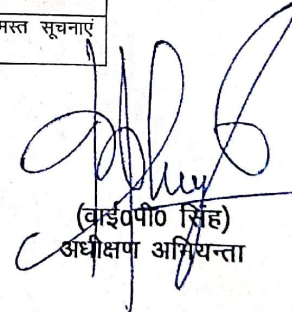 मस्त सूचनाएं
(वाई०पी० सिंह)
अधीक्षण अभियन्ता